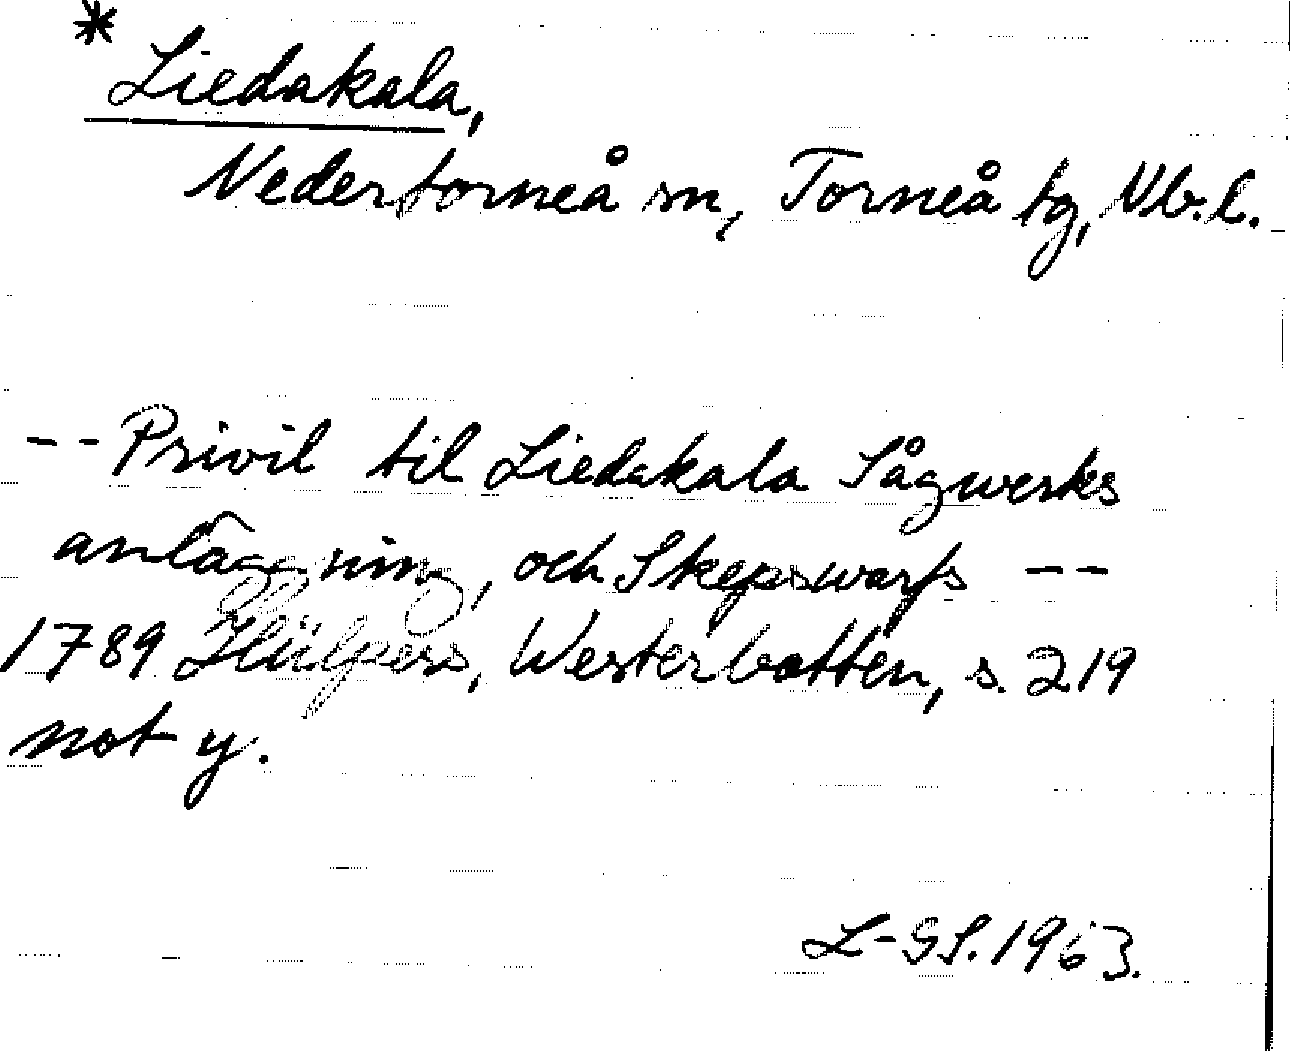 *
Liedakala,
Nedertorneå sn, Torneå tg, Nb.l.
-- Privil til Liedakala Sågwerks
anläggning, och Skepswarfs --
1789 Hülpers, Westerbotten, s. 219
not y.
L-GS. 1963.